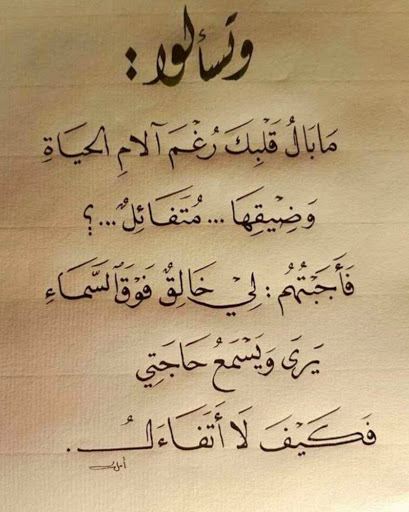 وتسألوا :
مَا بَالُ قَلْبِكَ رُغْمَ آلَامِ الحَيَاةِ
وَضِيْقِهَا ... مُتَفَائِلٌ ... ؟
فَأَجَبْتُهُم : لِيْ خَالِقٌ فَوْقَ السَّمَاءِ
يَرَى وَيَسْمَعُ حَاجَتِي
فَكَيْفَ لَا أَتَفَاءَلُ .